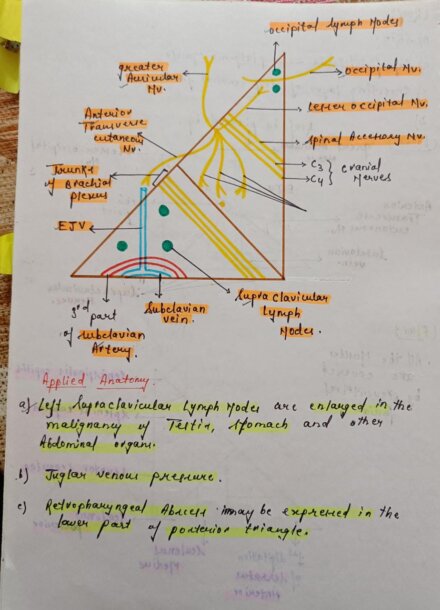 occipital lymph Nodes
greater
Auricular
Nv.
occipital Nv.
Anterior
Transverse
cutaneous
Nv.
Lesser occipital Nv.
spinal Accessory Nv.
Trunks
of Brachial
plexus
C3
C4
cranial
Nerves
EJV
3rd part
of subclavian
Artery.
Subclavian
vein.
Supra clavicular
Lymph
Nodes.
Applied Anatomy.
a) Left Supraclavicular Lymph Nodes are enlarged in the
malignancy of Testis, stomach and other
Abdominal organs.
b) Juglar venous pressure.
c) Retropharyngeal Abscess may be expressed in the
lower part of posterior triangle.